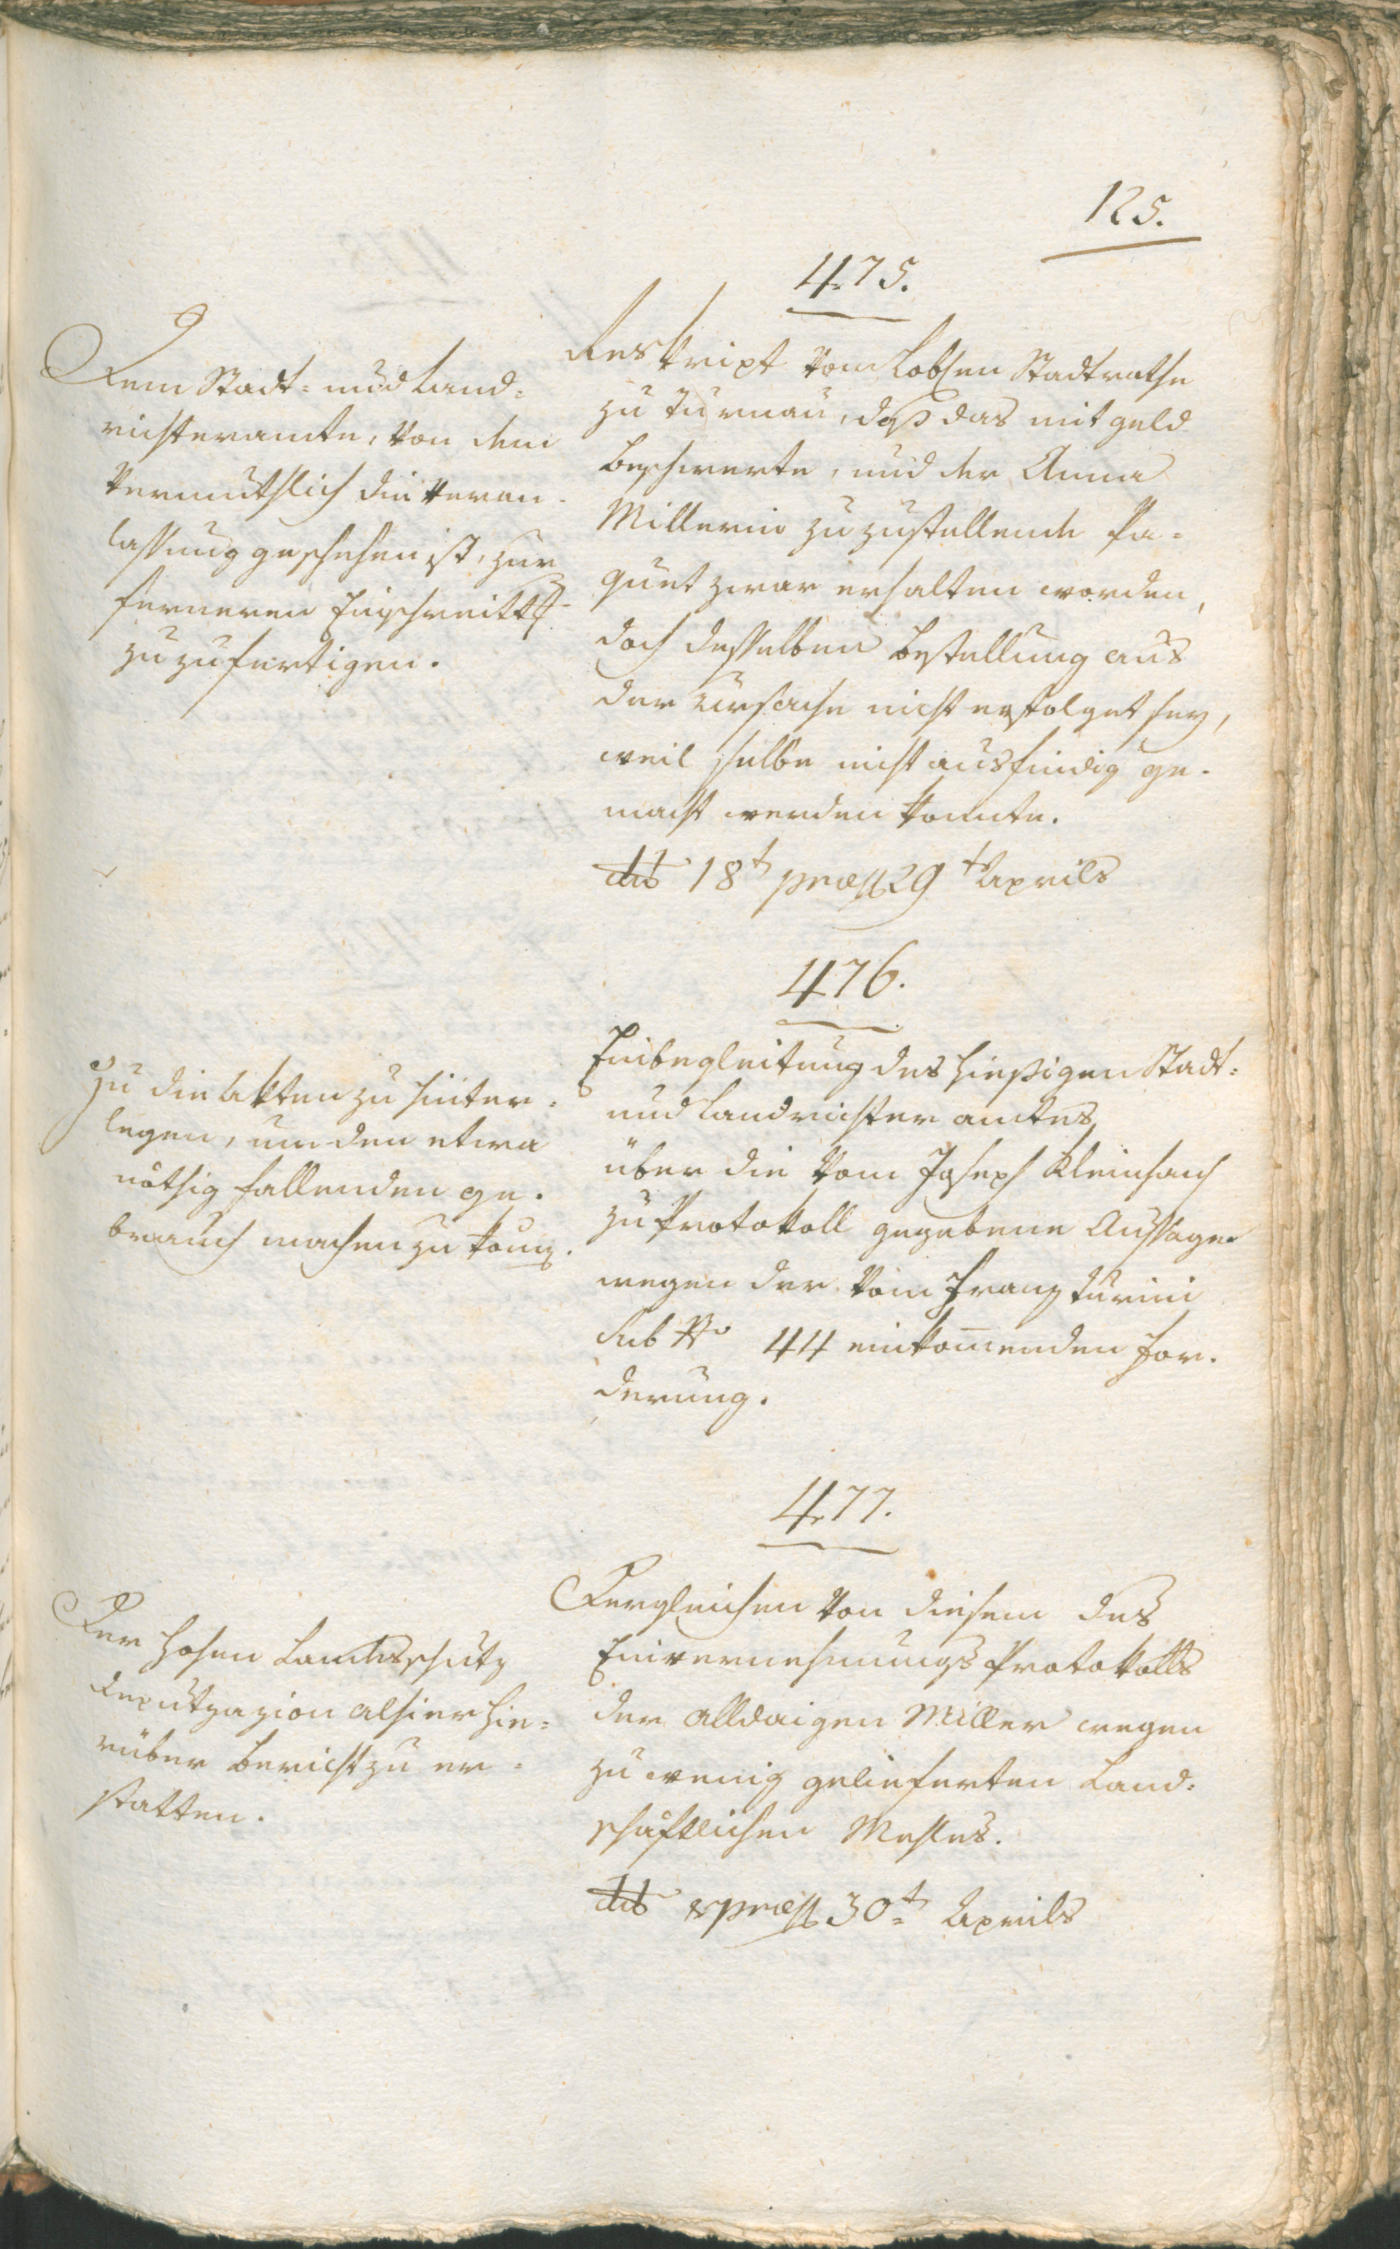 125.
475.
Dem Stadt- und Land-
richteramte, von dem
vermuthlich die Veran-
lassung geschehen ist, zur
ferneren Einschreittg
zuzufertigen.
Reskript vom Lobsen Stadtrathe
zu Turnau, daß das mit Geld
beschwerte, und der Anna
Millerin zuzustellende Pa-
quet zwar erhalten worden,
doch desselben Bestellung aus
der Ursache nicht erfolget sey,
weil selbe nicht ausfindig ge-
macht werden konnte.
dto 18t praes 29t Aprils
476.
Zu die Akten zu hinter-
legen, um den etwa
nöthig fallenden ge-
brauch machen zu könn.
Einbegleitung des hießigen Stadt-
und Landrichteramtes,
über die vom Joseph Kleinhans
zu Protokoll gegebene Aussage
wegen der vom Franz Turini
sub No 44 einkom̄enden For-
derung.
477.
Der hohen Landesschutz
Deputazion alhier hie-
rüber Bericht zu er-
statten.
Dergleichen von diesem des
Einvernehmungs Protokolls
der alldaigen Miller wegen
zu wenig gelieferten Land-
schäftlichen Mehles.
dto & praes 30t Aprils